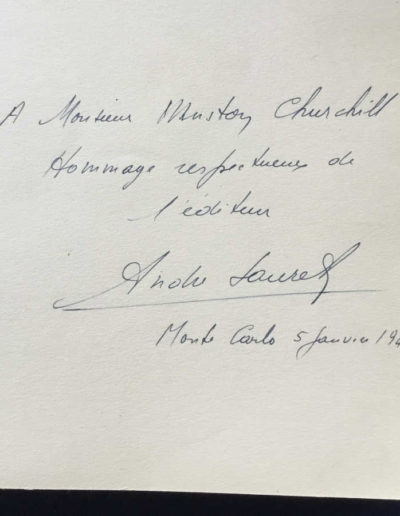 A Monsieur Winston Churchill
Hommage respectueux de
l'éditeur
André Sauret
Monte Carlo 5 Janvier 194